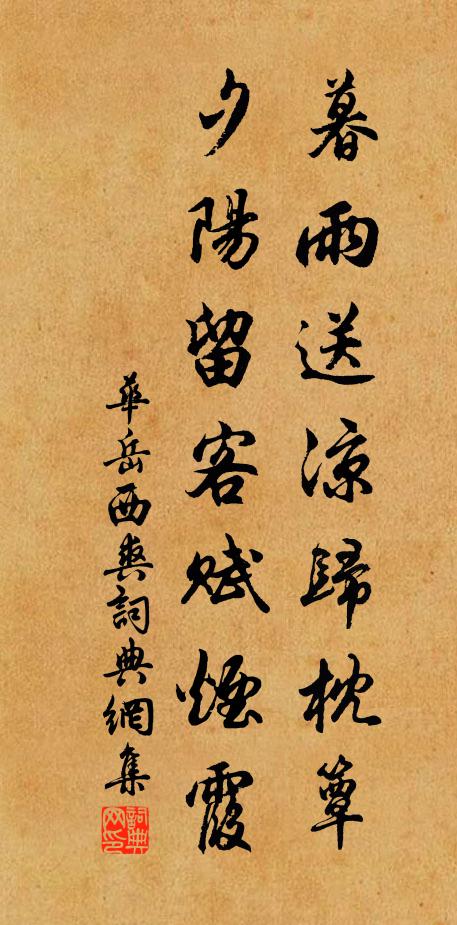 暮雨送涼歸枕簟
夕陽留客賦煙霞
華岳西爽詞典網集
詞典
网印